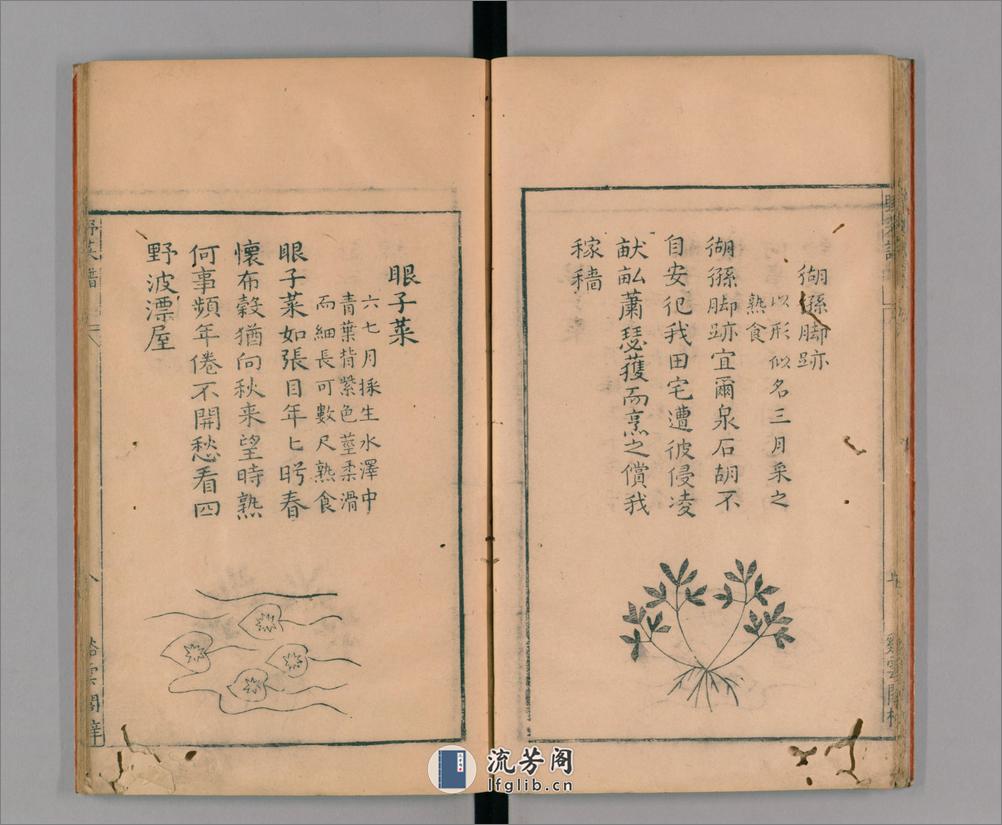 猢猻脚跡
以形似名三月采之
熟食
猢猻脚跡宜爾泉石胡不
自安犯我田宅遭彼侵凌
畎畝蕭瑟獲而烹之償我
稼穡
眼子菜
六七月採生水澤中
青葉背紫色莖柔滑
而細長可數尺熟食
眼子菜如張目年匕盻春
懷布穀猶向秋来望時熟
何事頻年倦不開愁看四
野波漂屋
野菜譜
流芳阁
lfglib.cn